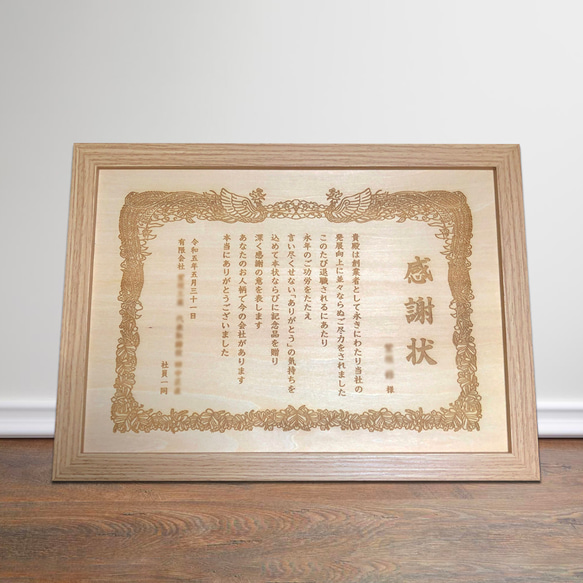 感謝状
様
貴殿は創業者として永きにわたり当社の
発展向上に並々ならぬご尽力をされました
このたび退職されるにあたり
永年のご功労をたたえ
言い尽くせない「ありがとう」の気持ちを
込めて本状ならびに記念品を贈り
深く感謝の意を表します
あなたのお人柄で今の会社があります
本当にありがとうございました
令和五年五月三十一日
有限会社
社員一同